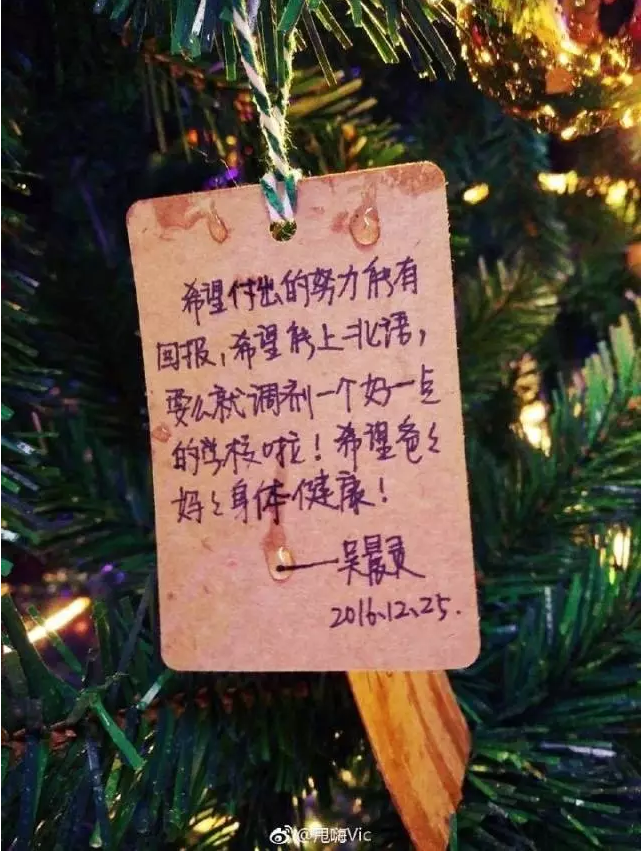 希望付出的努力能有
回报，希望能上北语，
要么就调剂一个好一点
的学校啦！希望爸々
妈々身体健康！
——吴晨灵
2016.12.25.
@甩嗨Vic